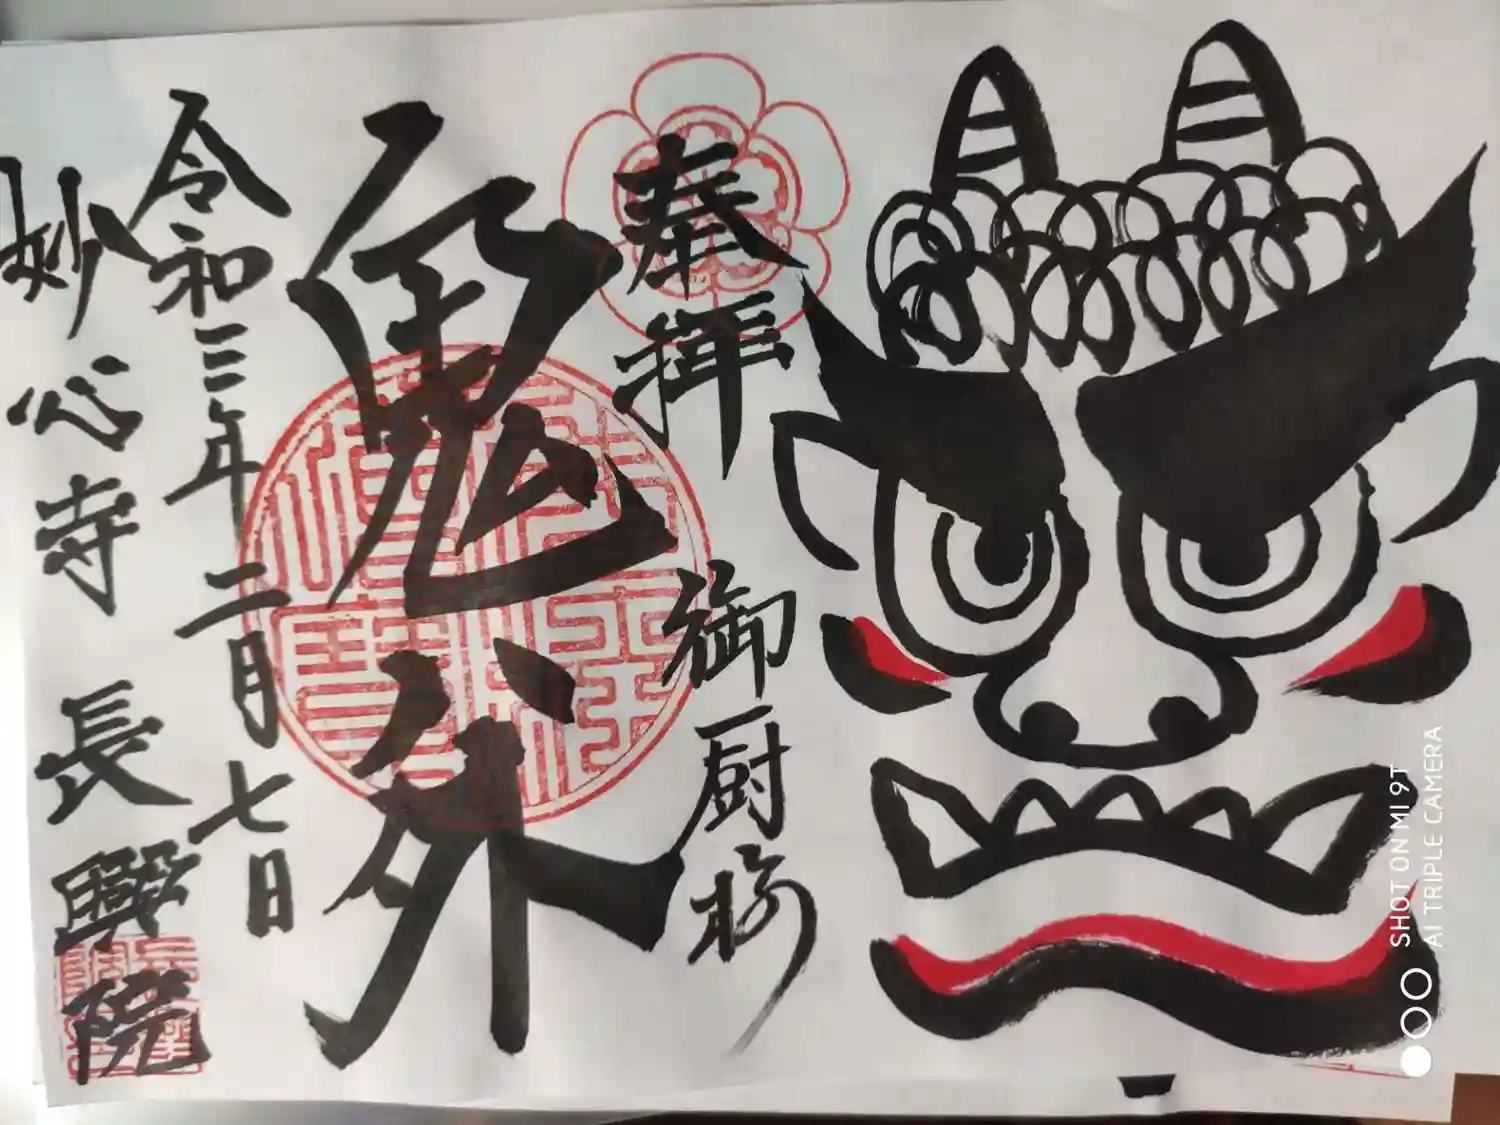 奉拝
御厨
鬼外
令和三年二月七日
妙心寺 長興院
SHOT ON MI 9T
AI TRIPLE CAMERA